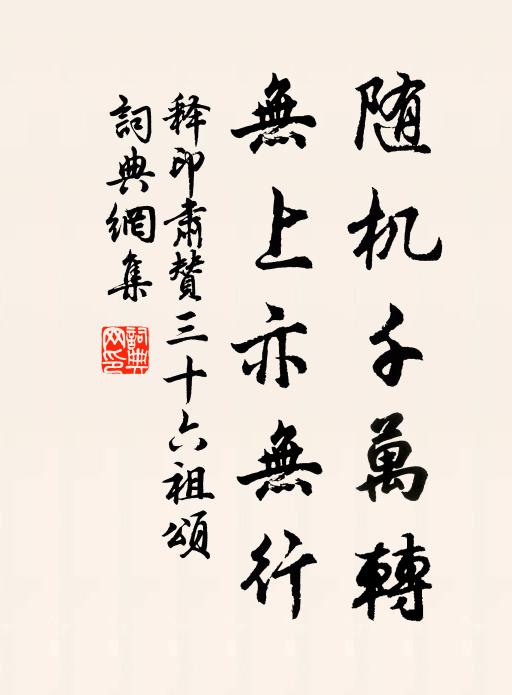 随机千萬轉
無上亦無行
释印肅赞三十六祖頌
詞典網集
詞典网印